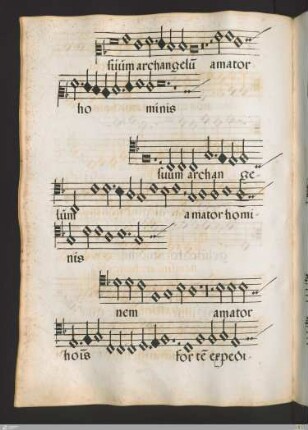 suum archangelū amator
ho minis
suum archan ge-
lum amator homi-
nis
nem amator
hois for tē expedi-